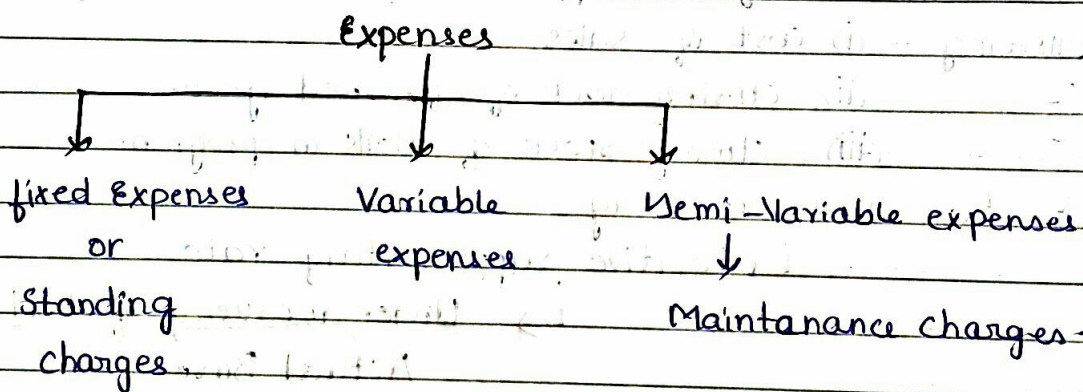 Expenses
fixed Expenses
or
Standing
charges.
Variable
expenses
Semi-Variable expenses
Maintanance charges.